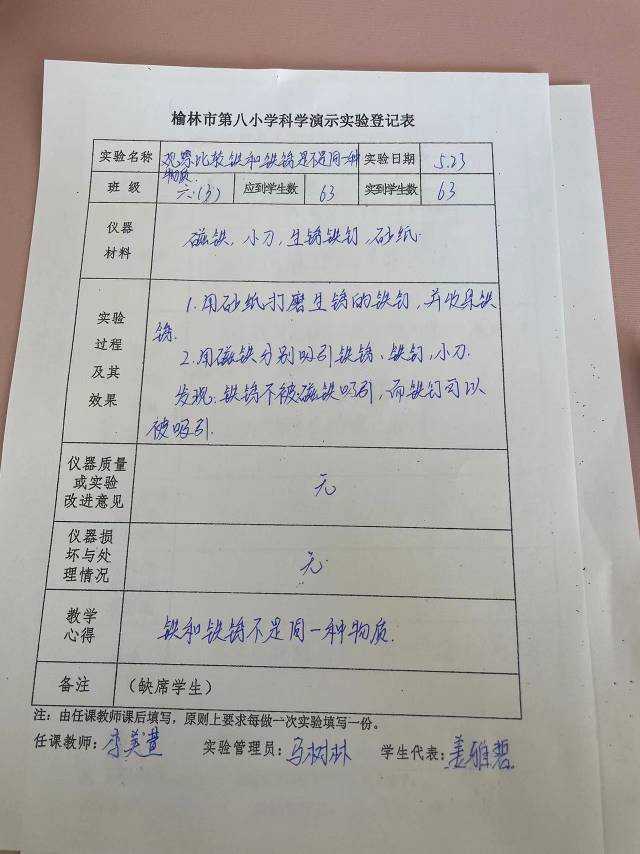 榆林市第八小学科学演示实验登记表
实验名称 观察比较铁和铁锈是不是同一种 实验日期 5.23
物质.
班 级 六(3) 应到学生数 63 实到学生数 63
仪器
材料
磁铁, 小刀, 生锈铁钉, 砂纸.
实验
过程
及其
效果
1.用砂纸打磨生锈的铁钉, 并收集铁
锈.
2.用磁铁分别吸引铁锈、铁钉, 小刀.
发现: 铁锈不被磁铁吸引, 而铁钉可以
被吸引.
仪器质量
或实验
改进意见
无
仪器损
坏与处
理情况
无.
教学
心得
铁和铁锈不是同一种物质.
备注 (缺席学生)
注: 由任课教师课后填写, 原则上要求每做一次实验填写一份。
任课教师: 李美萱 实验管理员: 马树林 学生代表: 姜雅碧